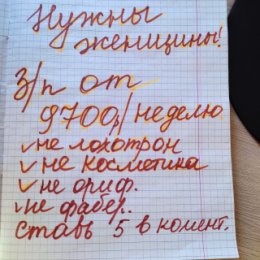 Нужны
женщины!
З/п от
9700р/неделю
✓не лохотрон
✓не косметика
✓не ориф.
✓не фабер..
Ставь 5 в комент.